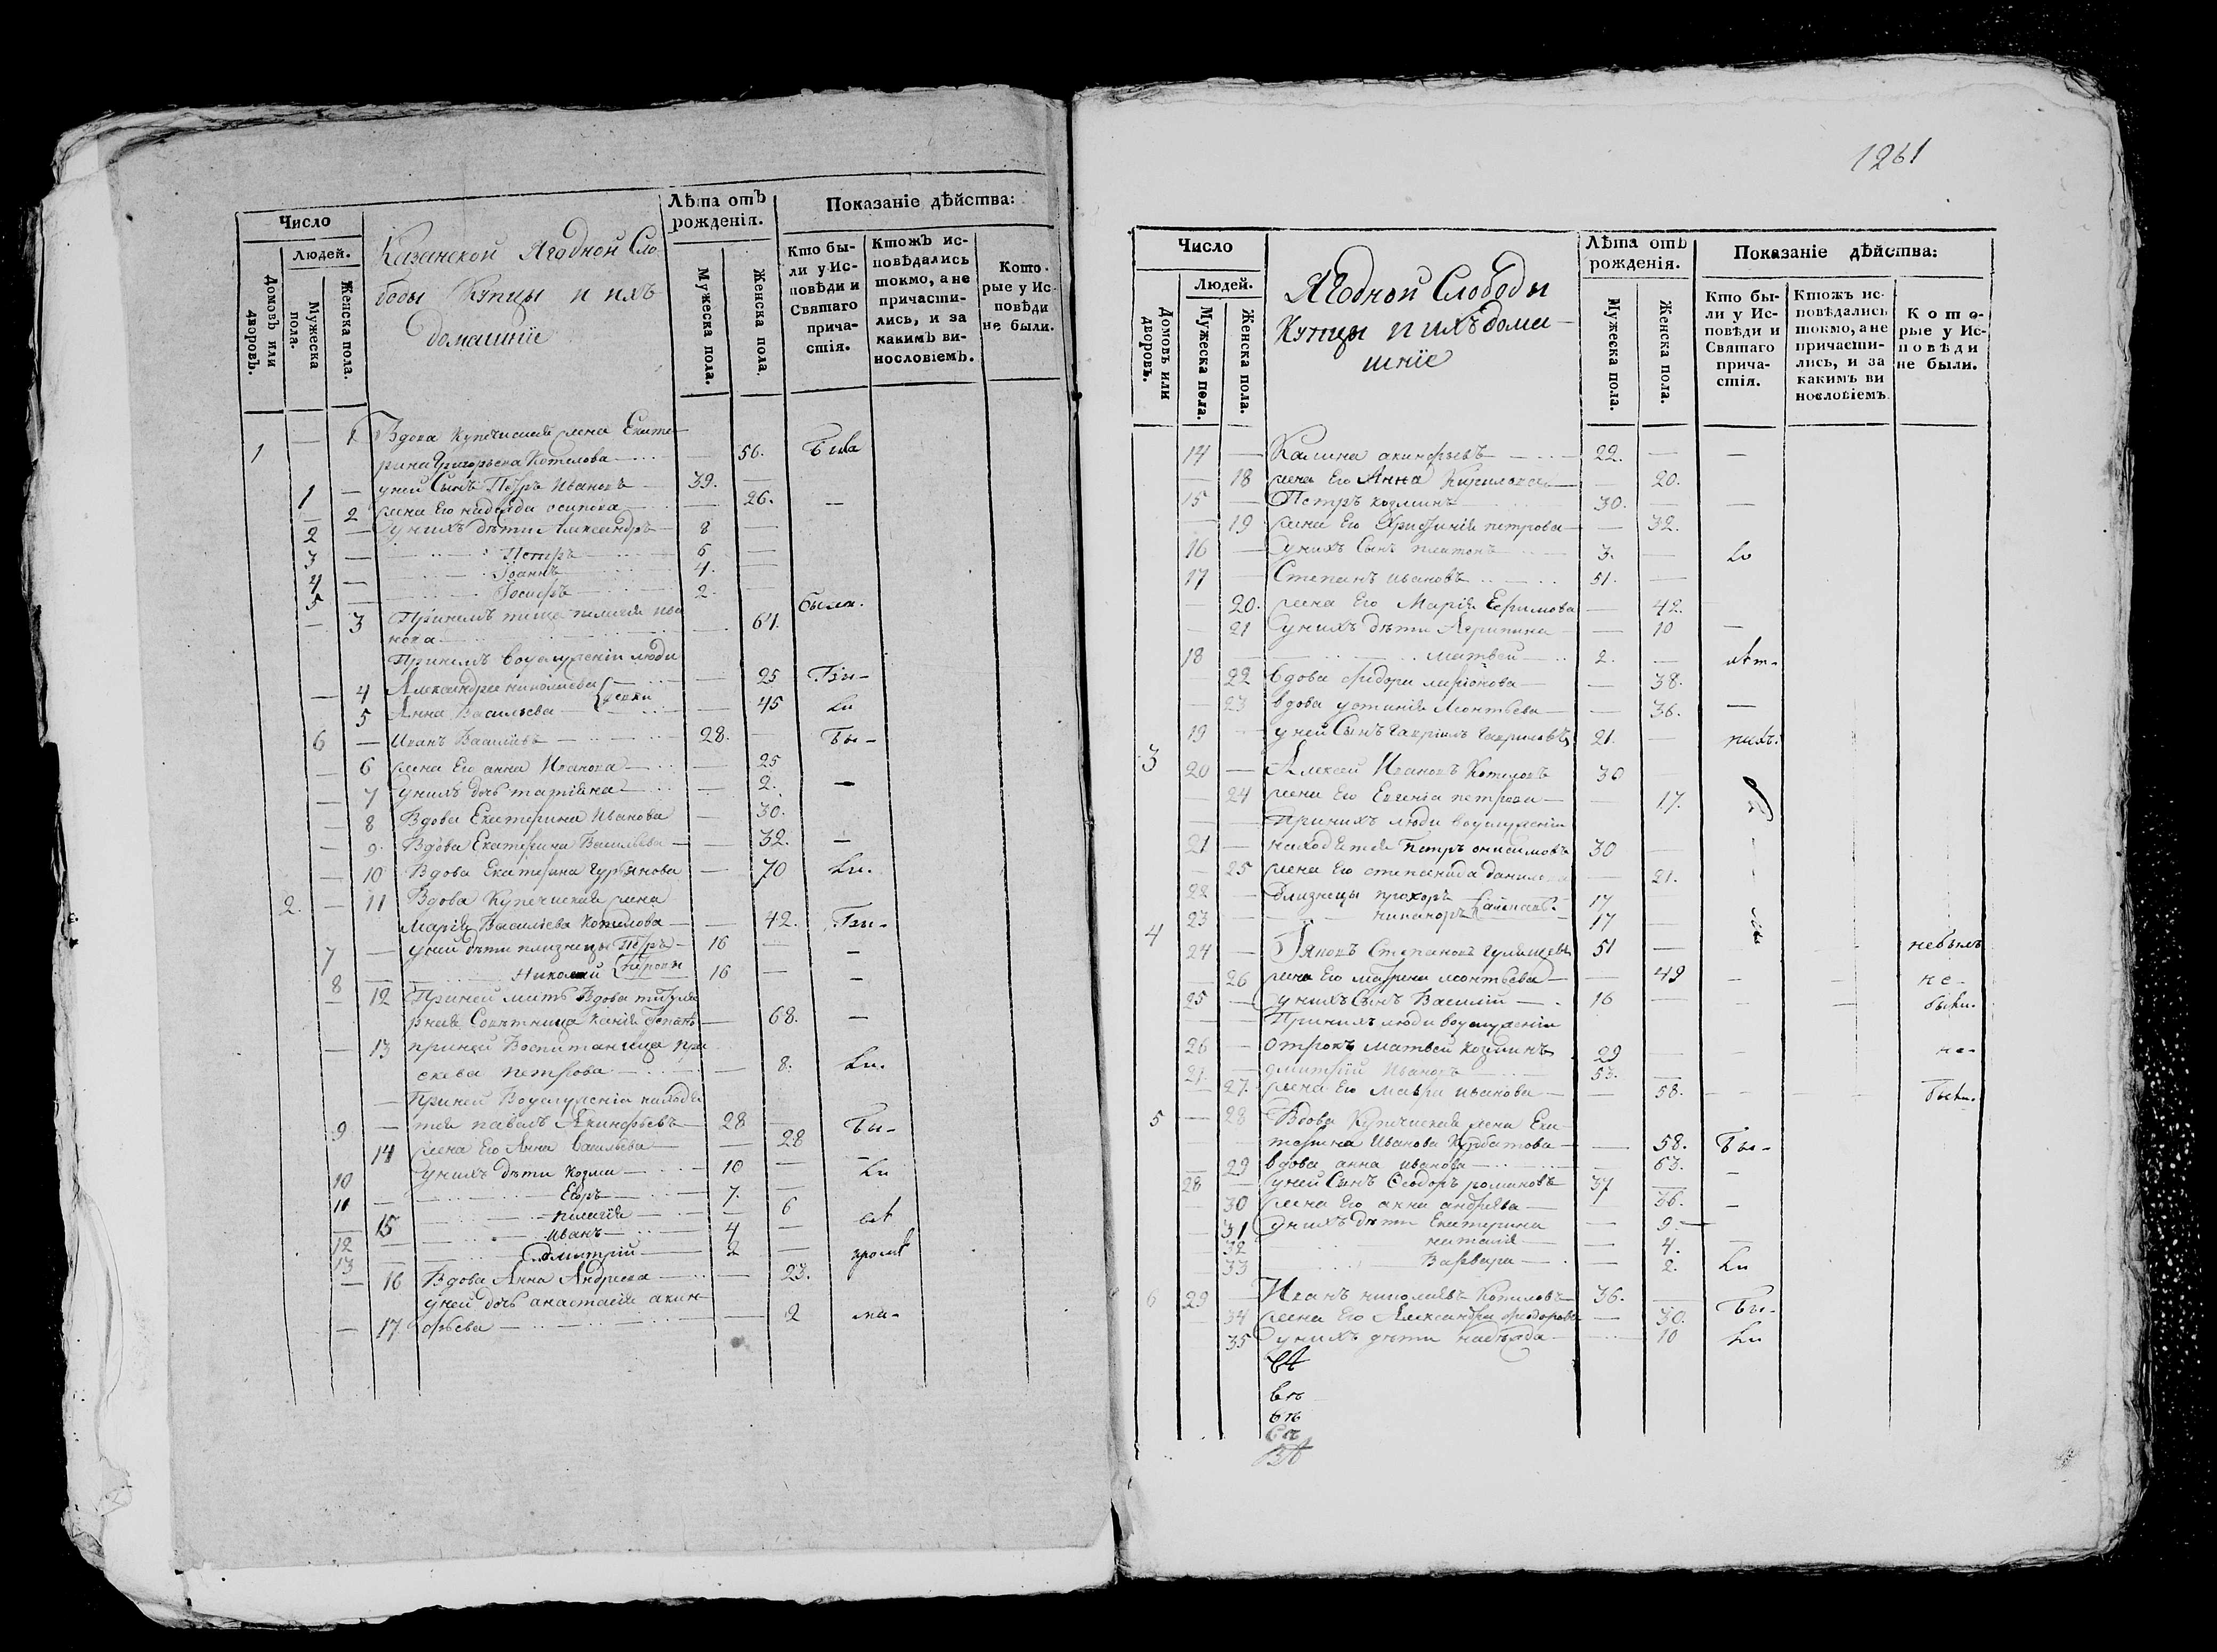 Число
Людей.
Домовъ или дворовъ.
Мужеска пола.
Женска пола.
Казанской Ягодной Сло
боды Купцы и ихъ
домашнiе
Лѣта отъ
рожденія.
Мужеска пола.
Женска пола.
Показаніе дѣйства:
Кто бы-
ли у Ис-
повѣди и
Святаго
прича-
стія.
Ктожъ ис-
повѣдались
токмо, а не
причасти-
лись, и за
какимъ ви-
нословіемъ.
Кото-
рые у Ис-
повѣди
не были.
1 — 1 Вдова Купеческая жена Екате
рина Григорьева Котелова — 56. Была
1 — уней Сынъ Петръ Ивановъ 39. —
— 2 жена Его надежда осипова — 26. —
2 — унихъ дѣти Александръ 8 —
3 — Петръ 6 —
4 — Iоаннъ 4. —
5 — Iосифъ 2. —
— 3 При нихъ пелагея ива
нова — 64. была.
Принихъ воуслуженiи люди
— 4 Александра николаева — 25 Бы-
5 Анна Васильева — девки — 45 ли
6 — Иванъ Васильевъ 28. — Бы-
— 6 жена Его анна Иванова — 25
— 7 унихъ дочь татiяна — 2. —
— 8 Вдова Екатерина Иванова — 30.
— 9. Вдова Екатерина Васильева — 32. —
— 10 Вдова Екатерина гурьянова — 70 ли.
2. — 11 Вдова Купеческая жена
Марiя Васильева Котелова — 42. Бы-
7 — уней дѣти близнецы Петръ 16 — —
8 — Николай Петровы 16 — —
— 12 Приней мать Вдова титуля
рная Совѣтница — 68. —
— 13 приней Воспитанница пра
скева петрова — 8. ли.
— Приней Воуслуженiи находя
9 — тся павелъ Акинфьевъ 28 — Бы-
14 жена Его Анна Васильева — 28 —
10 унихъ дѣти козма — 10 — ли
11 — Егоръ — 7. —
— 15 пелагея — 6
12 — Иванъ — 4 —
13 — Дмитрiй — 2 —
— 16 Вдова Анна Андреева — 23.
уней дочь анастасiя акин-
— 17 фьева — 2 ма-
1261
Число
Людей.
Домовъ или дворовъ.
Мужеска пола.
Женска пола.
Ягодной Слободы
Купцы и ихъ дома—
шнiе
Лѣта отъ
рожденія.
Мужеска пола.
Женска пола.
Показаніе дѣйства:
Кто бы-
ли у Ис-
повѣди и
Святаго
прича-
стія.
Ктожъ ис-
повѣдались
токмо, а не
причасти-
лись, и за
какимъ ви
нословіемъ.
Кото-
рые у Ис-
повѣди
не были.
14 — Калина акинфьевъ — 22. — —
— 18 жена Его Анна Кирилова — 20.
15 — Петръ козминъ — 30. — —
— 19 жена Его петрова — 32.
16 — унихъ Сынъ платонъ 3. —
17 — Степанъ ивановъ 51. —
— 20. жена Его Марiя Ефимова — 42.
— 21 унихъ дѣти Агрипина — 10 —
18 — матвей — 2. — лѣт-
22 вдова федора ларiонова — 38.
23 вдова устинiя Леонтьева — 36. —
19 уней Сынъ гаврiилъ гавриловъ 21. — нихъ.
3 20 — Алексей Ивановъ Котеловъ 30
— 24 жена Его Евгенiа петрова — 17.
— Принихъ люди воуслуженiи
21 — находятся Петръ онисимовъ 30
— 25 жена Его степанида данилова 21.
22 — близнецы прохоръ 17
23 — никаноръ 17
4 24 — Iяковъ Степановъ 51 — небылъ
— 26 жена Его матрена леонтьева — 49 — не-
25 — унихъ Сынъ Василiй — 16 — были.
— Принихъ люди воуслуженiи
26 — отрокъ матвей козминъ 29 — не-
27 — дмитрiй Ивановъ 53. —
— 27. жена Его мавра иванова — 58. — были.
5 — 28 Вдова Купеческая жена Ека
терина Иванова Курбатова — 58. Бы-
— 29 вдова анна иванова — 63. —
28 — уней Сынъ Феодоръ романовъ 37 —
— 30 жена Его анна андреева — 36. —
31 унихъ дѣти Екатерина — 9. —
32 наталiя — 4. —
33 Варвара — 2. ли
6 29 — Иванъ николаевъ Котеловъ 36. — Бы-
34 жена Его Александра феодорова — 30.
35 унихъ дѣти надѣжда — 10 ли